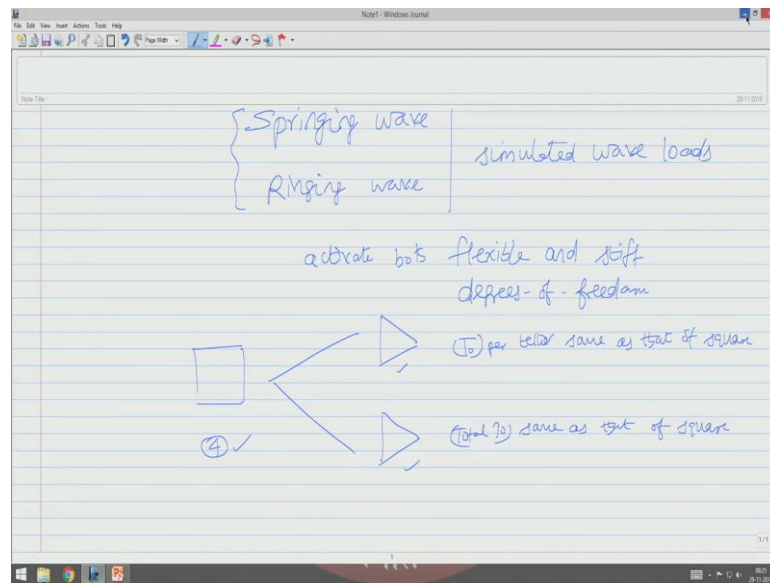 Note1 - Windows Journal
File Edit View Insert Actions Tools Help
Page Width
Note Title
29-11-2016
Springing wave
Ringing wave
simulated wave loads
activate both flexible and stiff
degrees-of-freedom
(T0) per tether same as that of square
4
(Total T0) same as that of square
1/1
1